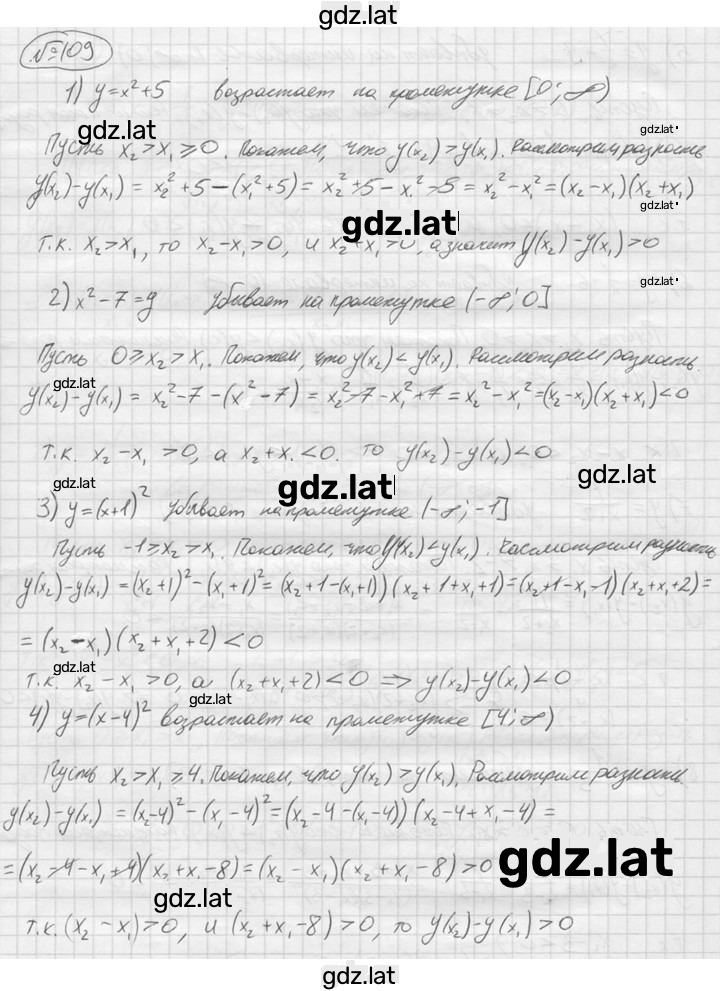 gdz.lat
№109
1) y=x²+5 возрастает на промежутке [0; ∞)
gdz.lat
gdz.lat
Пусть x₂ > x₁ ⩾ 0. Покажем, что y(x₂) > y(x₁). Рассмотрим разность
y(x₂)-y(x₁) = x₂²+5-(x₁²+5) = x₂²+5-x₁²-5 = x₂²-x₁² = (x₂-x₁)(x₂+x₁)
gdz.lat
gdz.lat
т.к. x₂ > x₁, то x₂-x₁>0, и x₂+x₁>0, а значит y(x₂)-y(x₁)>0
gdz.lat
2) x²-7=y убывает на промежутке (-∞; 0]
Пусть 0 ⩾ x₂ > x₁. Покажем, что y(x₂) < y(x₁). Рассмотрим разность.
gdz.lat
y(x₂)-y(x₁) = x₂²-7-(x²-7) = x₂²-7-x₁²+7 = x₂²-x₁² = (x₂-x₁)(x₂+x₁)<0
т.к. x₂-x₁ >0, а x₂+x₁<0. то y(x₂)-y(x₁)<0
gdz.lat
gdz.lat
gdz.lat
3) y=(x+1)² убывает на промежутке (-∞; -1]
Пусть -1⩾x₂>x₁. Покажем, что y(x₂)<y(x₁). Рассмотрим разность
y(x₂)-y(x₁) = (x₂+1)²-(x₁+1)² = (x₂+1-(x₁+1))(x₂+1+x₁+1) = (x₂+1-x₁-1)(x₂+x₁+2) =
= (x₂-x₁)(x₂+x₁+2)<0
gdz.lat
т.к. x₂-x₁>0, а (x₂+x₁+2)<0 => y(x₂)-y(x₁)<0
gdz.lat
4) y=(x-4)² возрастает на промежутке [4; ∞)
Пусть x₂>x₁⩾4. Покажем, что y(x₂)>y(x₁). Рассмотрим разность.
y(x₂)-y(x₁) = (x₂-4)²-(x₁-4)² = (x₂-4-(x₁-4))(x₂-4+x₁-4) =
gdz.lat
= (x₂-4-x₁+4)(x₂+x₁-8) = (x₂-x₁)(x₂+x₁-8)>0
gdz.lat
т.к. (x₂-x₁)>0, и (x₂+x₁-8)>0, то y(x₂)-y(x₁)>0
gdz.lat